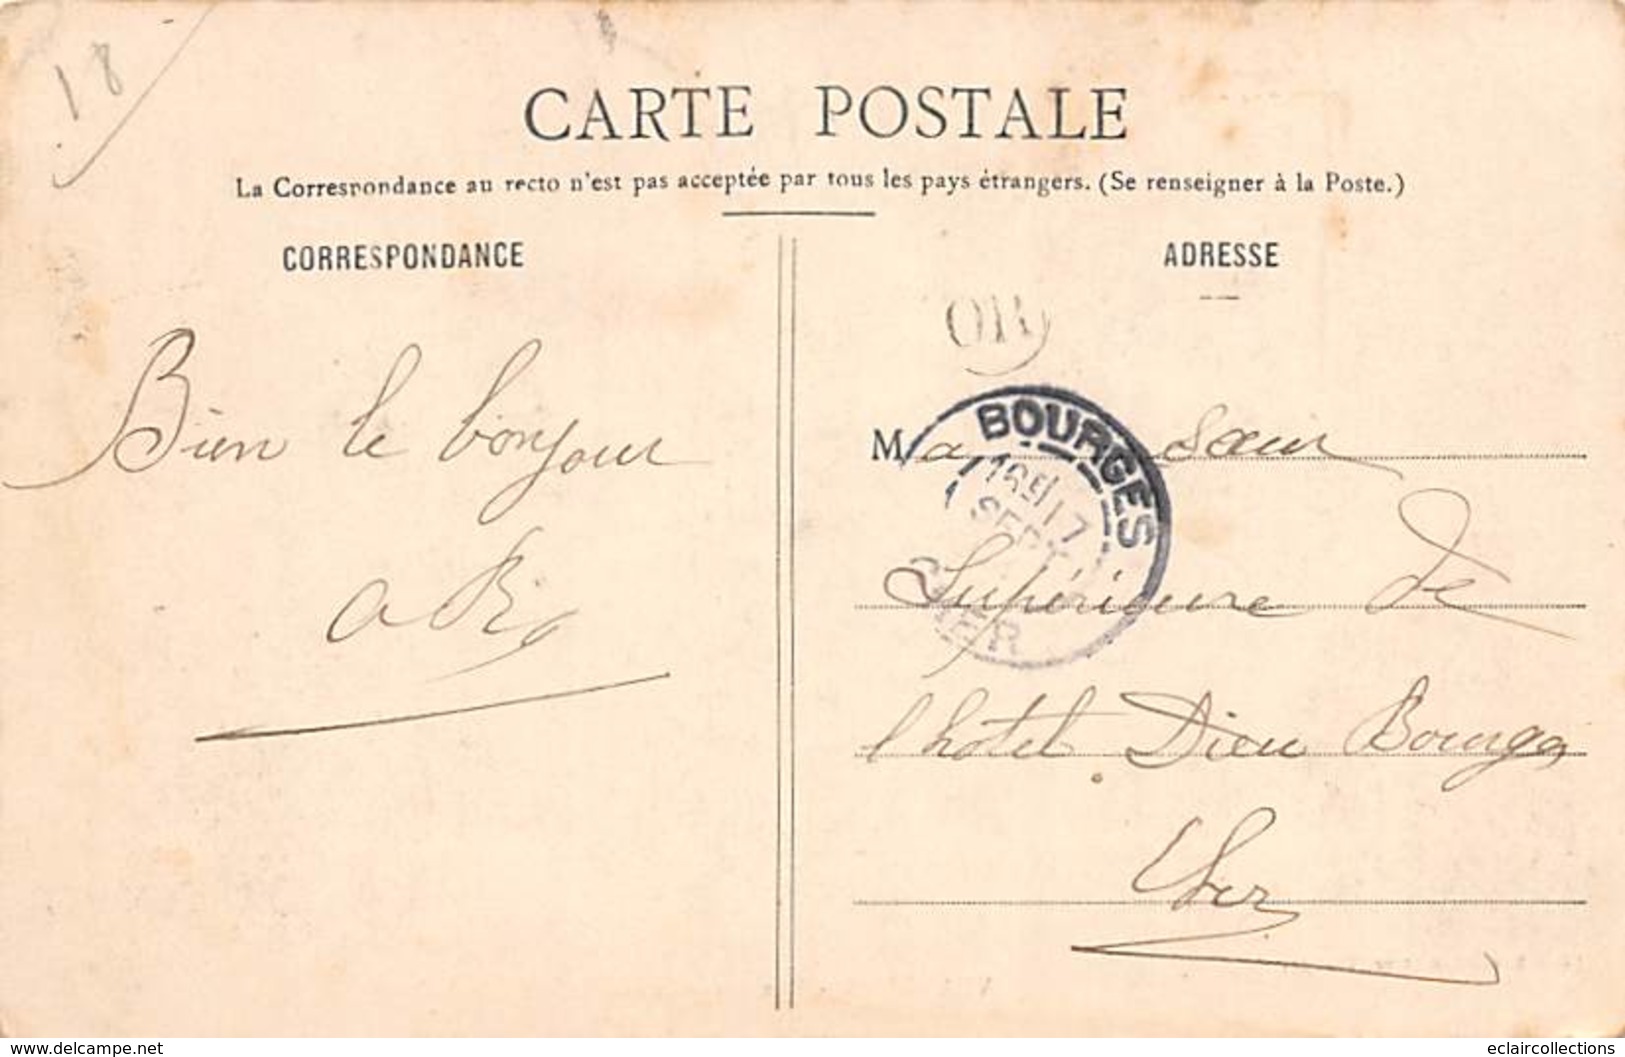 18
CARTE POSTALE
La Correspondance au recto n'est pas acceptée par tous les pays étrangers. (Se renseigner à la Poste.)
CORRESPONDANCE
ADRESSE
Bien le bonjour
BOURGES
17
SEPT
CHER
Ma Sœur
Supérieure de
l'hôtel Dieu Bourges
Cher
www.delcampe.net
eclaircollections